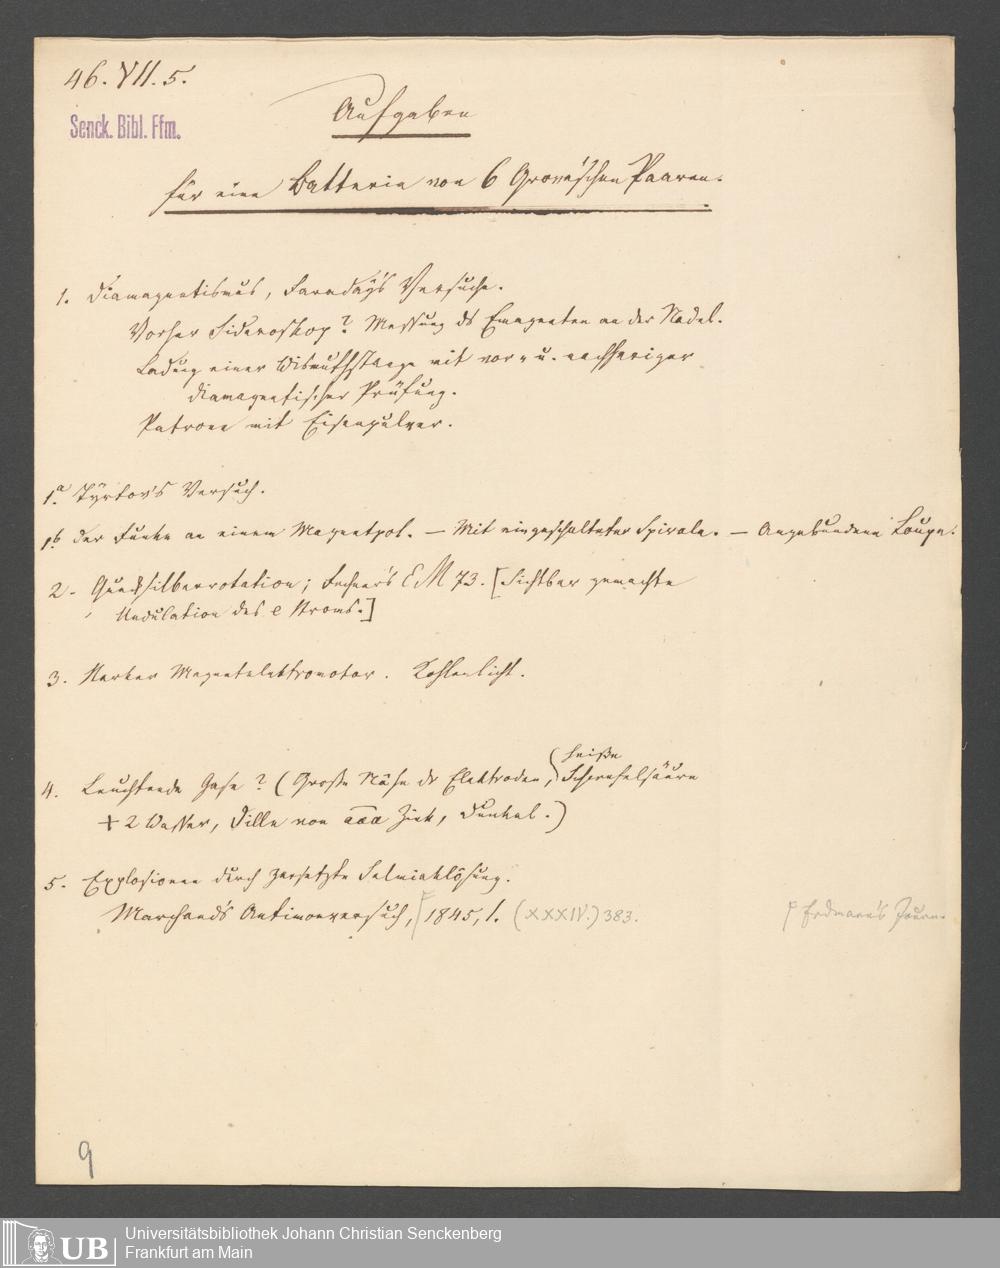 46. VII. 5.
Senck. Bibl. Ffm.
Aufgaben
für eine Batterie von 6 Grove'schen Paaren.
1. Diamagnetismus, Faraday's Versuche.
Vorher Sideroskop? Messung ds Emagneten an der Nadel.
Ladung einer Wismuthstange mit vor- u. nachheriger
diamagnetischer Prüfung.
Patrone mit Eisenpulver.
1.a Versuch.
1b der Funke an einem Magnetpol. — Mit eingeschalteter Spirale. — Angebundene Loupe.
2. Quecksilberrotation; Fechner's EM 73. [Sichtbar gemachte
Undulation des e Stroms.]
3. Starker Magnetelektromotor. Kohlenlicht.
heiße
4. Leuchtende Gase? (Große Nähe dr Elektroden, Schwefelsäure
+ 2 Wasser, Fülle von aaa Zink, Dunkel.)
5. Explosionen durch zersetzte Salmiaklösung.
Marchand's Antimonversuch, 1845, 1. (XXXIV.) 383.
Erdmann's Journ.
9
UB
Universitätsbibliothek Johann Christian Senckenberg
Frankfurt am Main